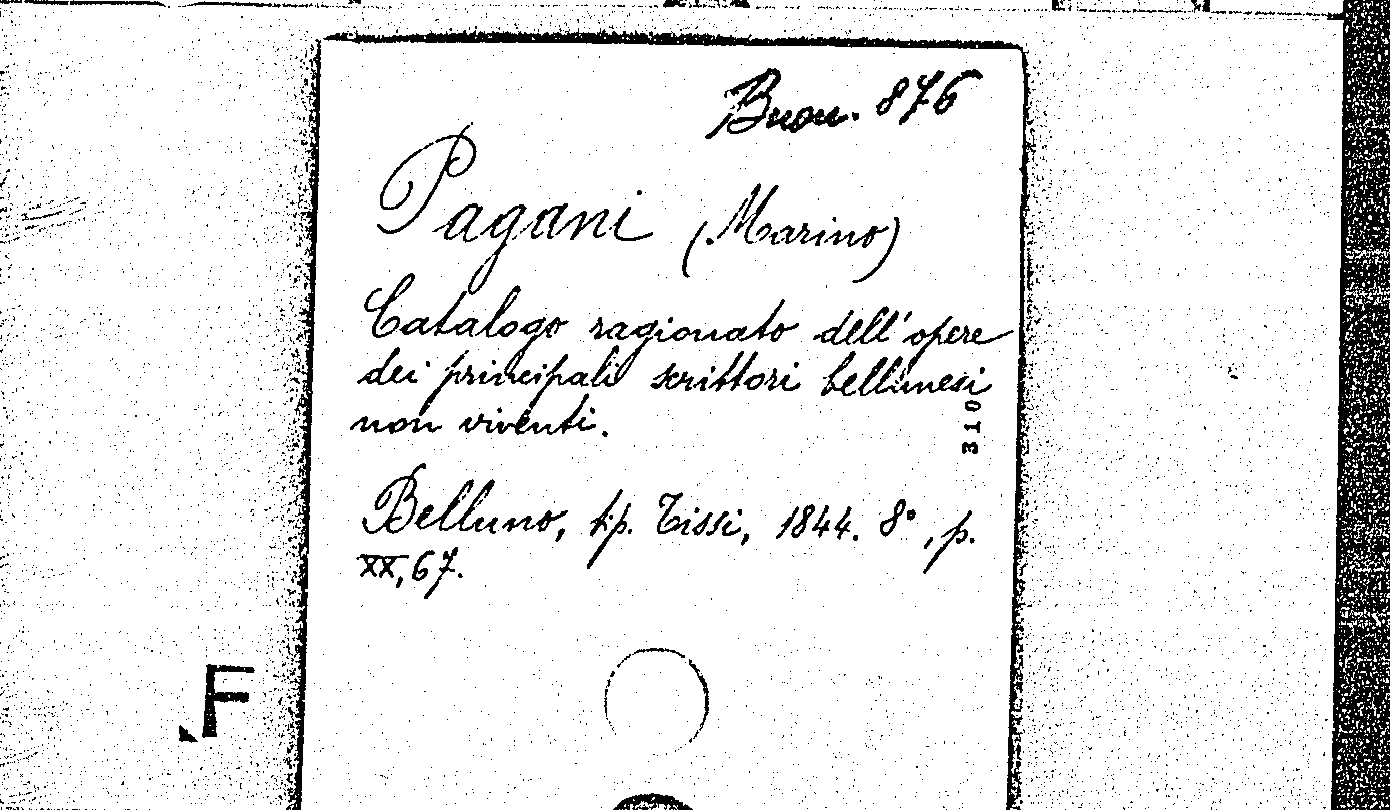 Buon. 876
Pagani (Marino)
Catalogo ragionato dell'opere
dei principali scrittori bellunesi
non viventi.
310
Belluno, tip. Tissi, 1844. 8°, p.
XX, 67.
F